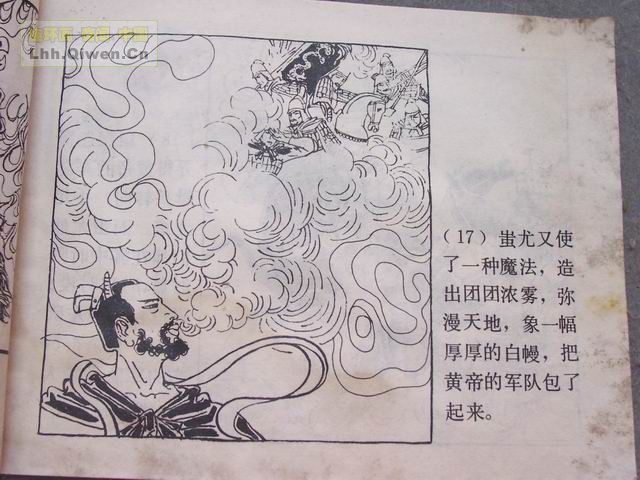 连环画·奇闻·中国
Lhh.Qiwen.Cn
（17）蚩尤又使
了一种魔法，造
出团团浓雾，弥
漫天地，象一幅
厚厚的白幔，把
黄帝的军队包了
起来。